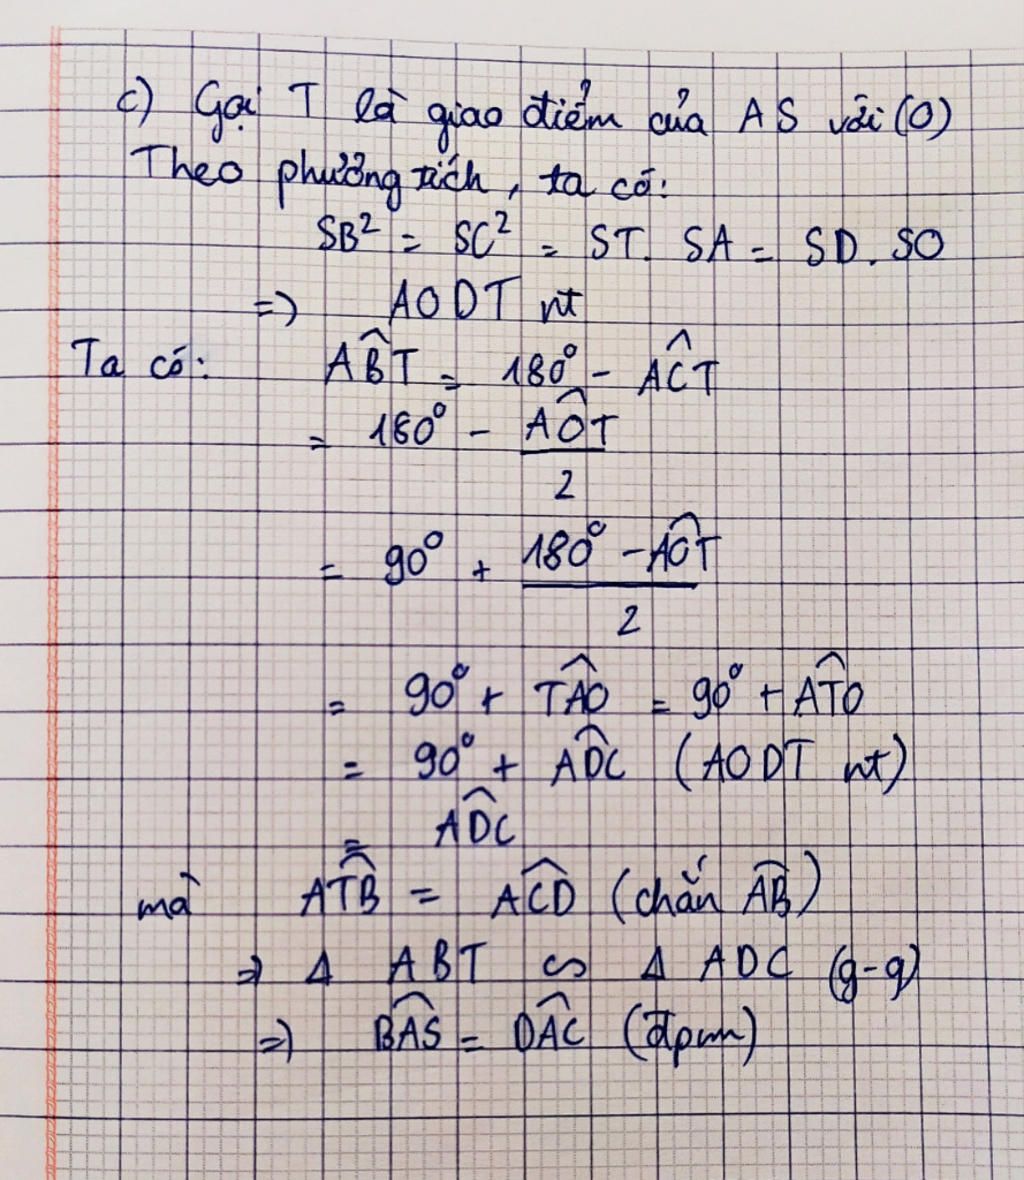 c) Gọi T là giao điểm của AS với (O)
Theo phương tích, ta có:
SB² = SC² = ST. SA = SD. SO
=> AODT nt
Ta có: \widehat{ABT} = 180° - \widehat{ACT}
= 180° - \frac{\widehat{AOT}}{2}
= 90° + \frac{180° - \widehat{AOT}}{2}
= 90° + \widehat{TAO} = 90° + \widehat{ATO}
= 90° + \widehat{ADC} (AODT nt)
= \widehat{ADC}
mà \widehat{ATB} = \widehat{ACD} (chắn \widehat{AB})
=> Δ ABT ∽ Δ ADC (g-g)
=> \widehat{BAS} = \widehat{DAC} (đpcm)